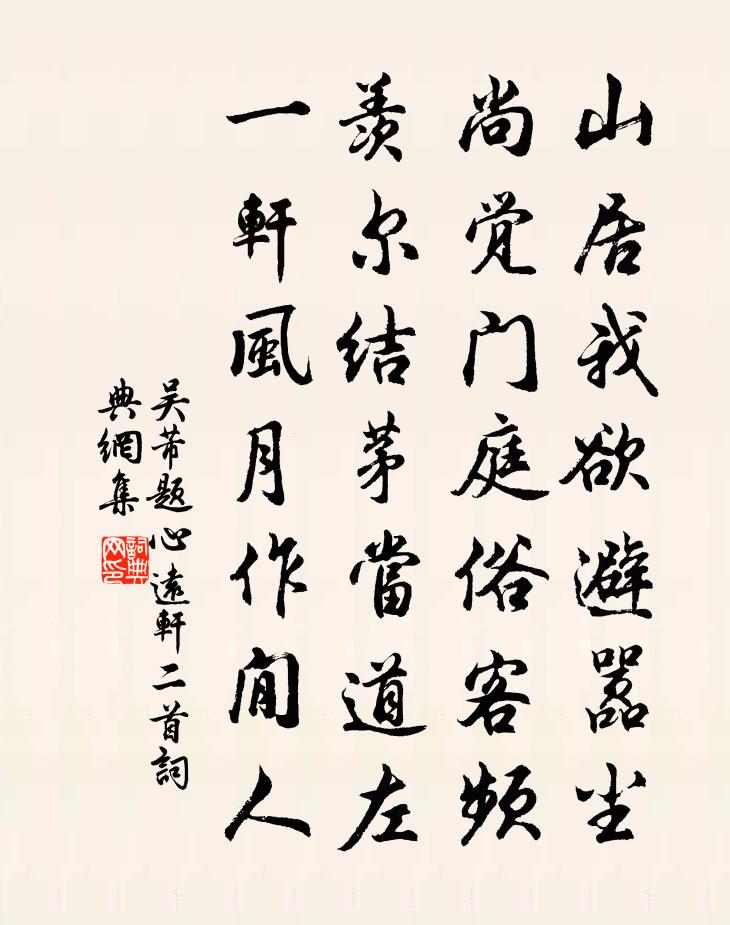 山居我欲避嚣尘
尚觉门庭俗客频
羡尔结茅當道左
一軒風月作閒人
吴芾题心遠軒二首詞
典網集
詞典
网印